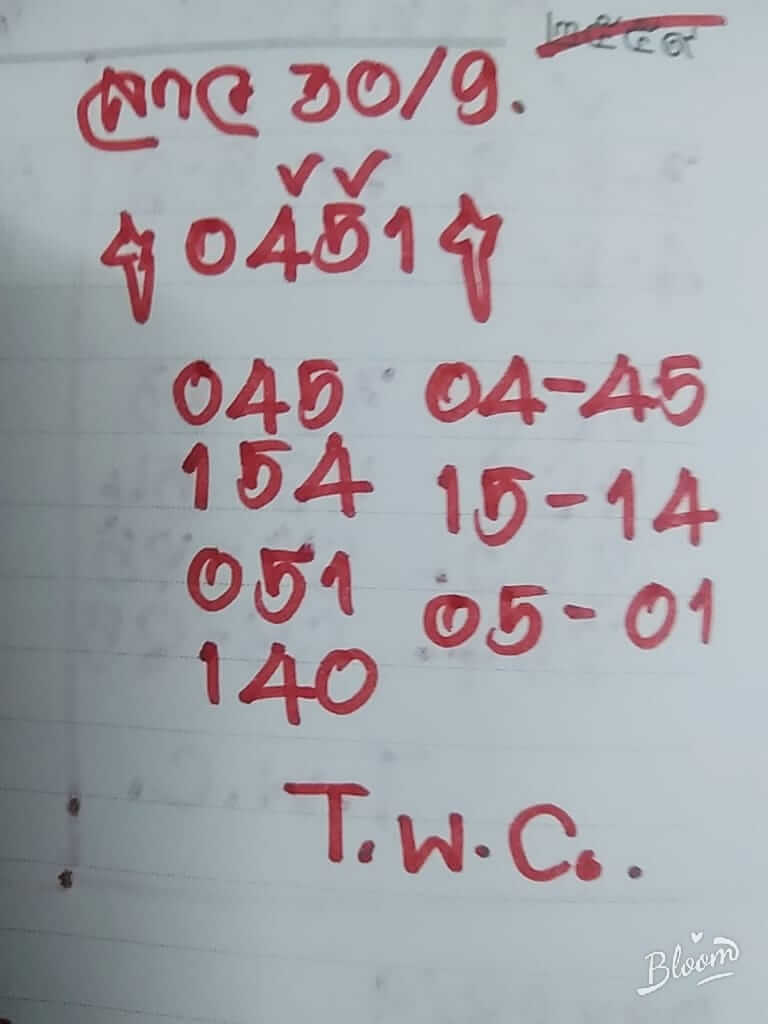 30/9.
0451
045 04-45
154 15-14
051 05-01
140
T.W.C..
Bloom